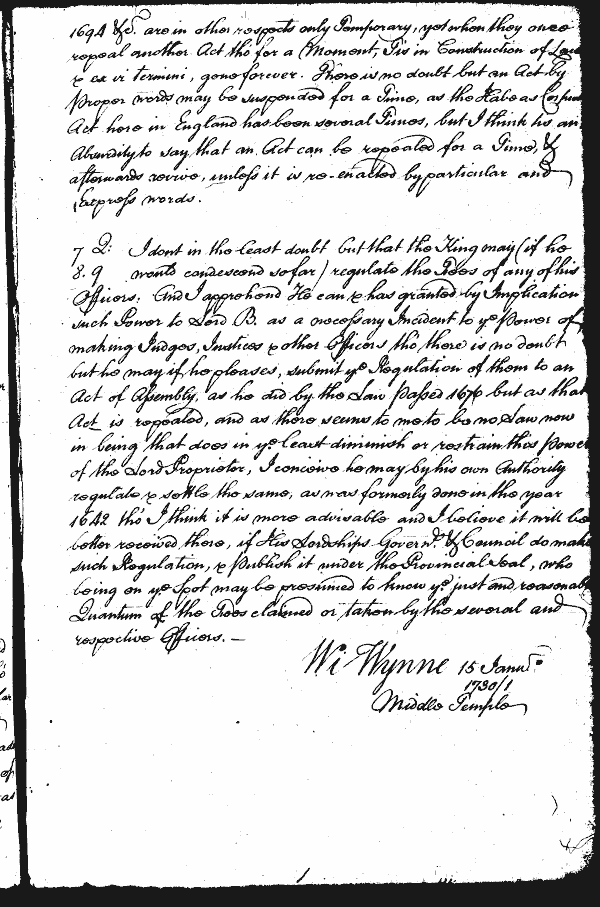 1694 &c. are in other respects only Temporary, yet when they once
repeal another Act tho' for a Moment, Tis in Construction of Law
& ex vi termini, gone forever. There is no doubt but an Act by
Proper words may be suspended for a Time, as the Habeas Corpus
Act here in England has been several Times, but I think tis an
Absurdity to say that an Act can be repealed for a Time, &
afterwards revive, unless it is re-enacted by particular and
Express words.
7 Q: I dont in the least doubt but that the King may (if he
8. 9 would condescend so far) regulate the Fees of any of his
Officers. And I apprehend He can & has granted by Implication
such Power to Lord B. as a necessary Incident to ye Power of
making Judges, Justices & other Officers tho' there is no doubt
but he may if he pleases, submit ye Regulation of them to an
Act of Assembly, as he did by the Law passed 1676 but as that
Act is repealed, and as there seems to me to be no Law now
in being that does in ye least diminish or restrain this Power
of the Lord Proprietor, I conceive he may by his own Authority
regulate & settle the same, as was formerly done in the year
1642 tho' I think it is more adviseable and I believe it will be
better received there, if His Lordships Govern.r & Council do make
such Regulation, & Publish it under the Provincial Seal, who
being on ye Spot may be presumed to know ye just and reasonable
Quantum of the Fees claimed or taken by the several and
respective Officers. —
Wi Wynne 15 Janu.
1730/1
Middle Temple